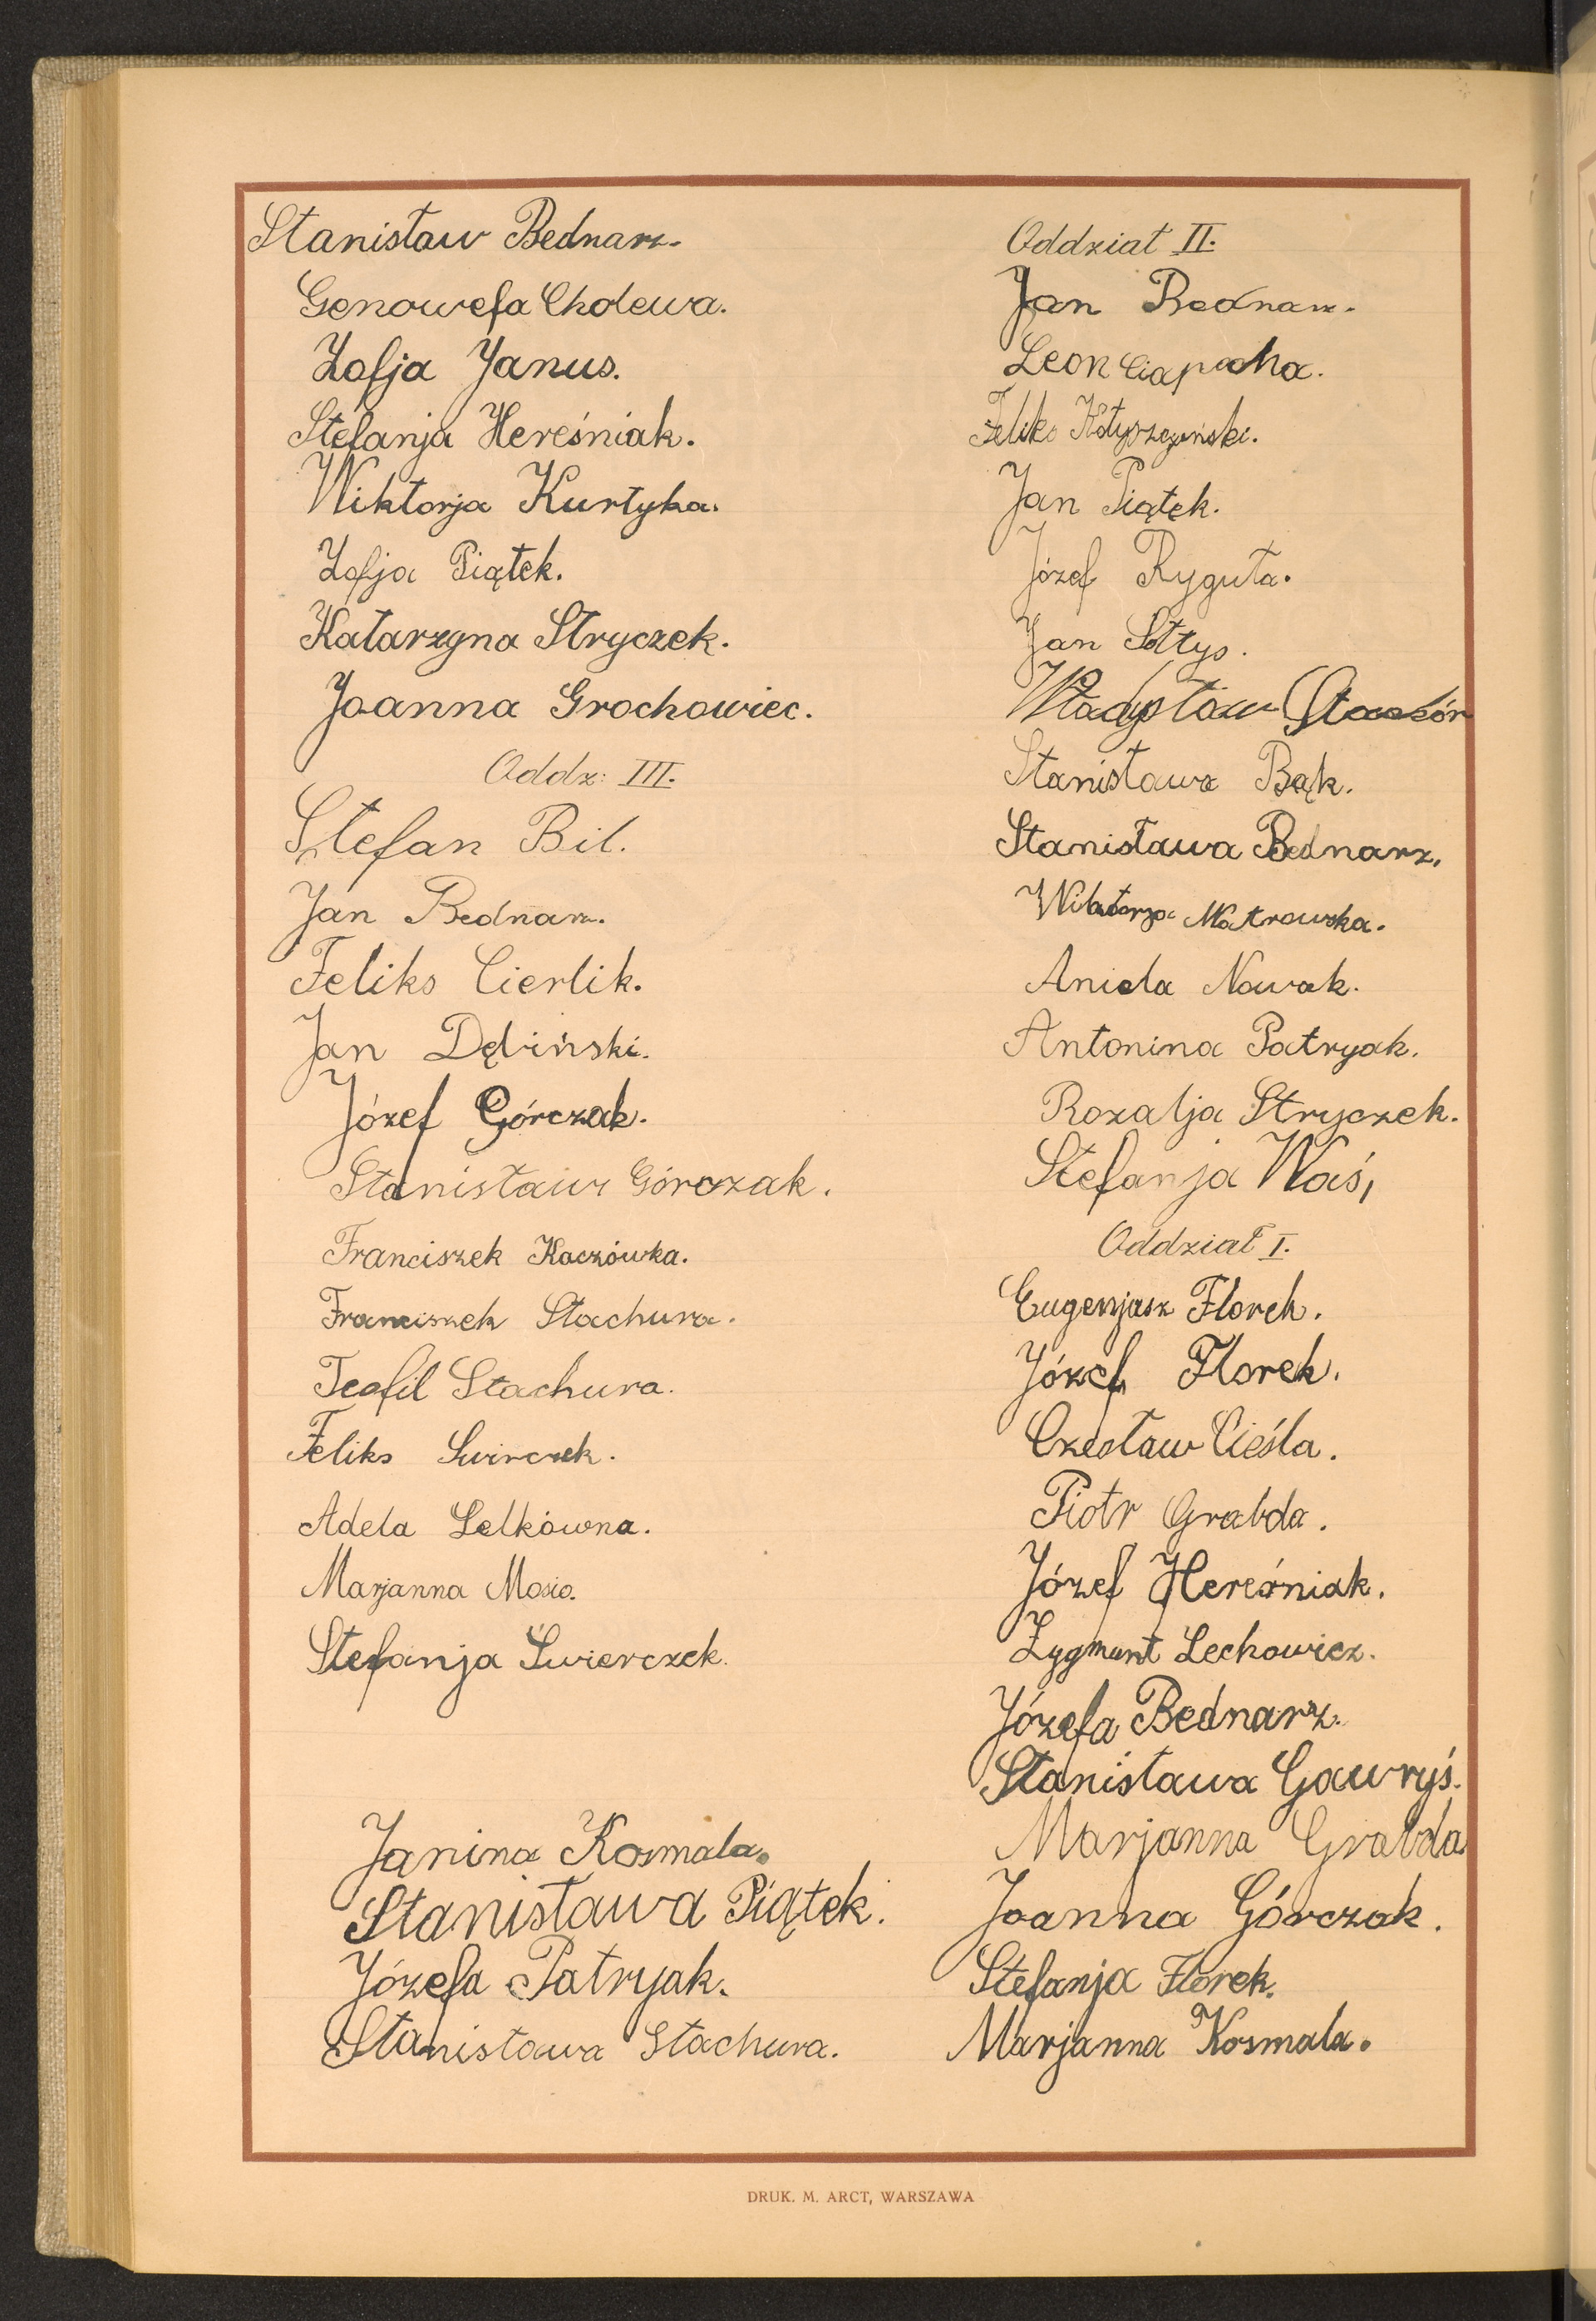 Stanisław Bednarz.
Genowefa Cholewa.
Zofja Janus.
Stefanja Hereśniak.
Wiktorja Kurtyka.
Zofja Piątek.
Katarzyna Stryczek.
Joanna Grochowiec.
Oddz: III.
Stefan Bil.
Jan Bednarz.
Feliks Cierlik.
Jan Dębiński.
Józef Górczak.
Stanisław Górczak.
Franciszek Kaczówka.
Franciszek Stachura.
Teofil Stachura.
Feliks Swirczek.
Adela Lelkówna.
Marjanna Mosio.
Stefanja Świerczek.
Janina Kosmala.
Stanisława Piątek.
Józefa Patryak.
Stanisława Stachura.
Oddział II.
Jan Bednarz.
Leon
Feliks
Jan Piątek.
Józef Ryguła.
Jan Sołtys.
Władysław
Stanisława Bąk.
Stanisława Bednarz.
Wiktorja
Aniela Nowak.
Antonina Patryak.
Rozalja Stryczek.
Stefanja Waś,
Oddział I.
Eugenjusz Florek.
Józef Florek.
Czesław Cieśla.
Piotr Grabda.
Józef Hereśniak.
Zygmunt Lechowicz.
Józefa Bednarz.
Stanisława Gawryś.
Marjanna Grabda
Joanna Górczak.
Stefanja Florek.
Marjanna Kosmala.
DRUK. M. ARCT, WARSZAWA